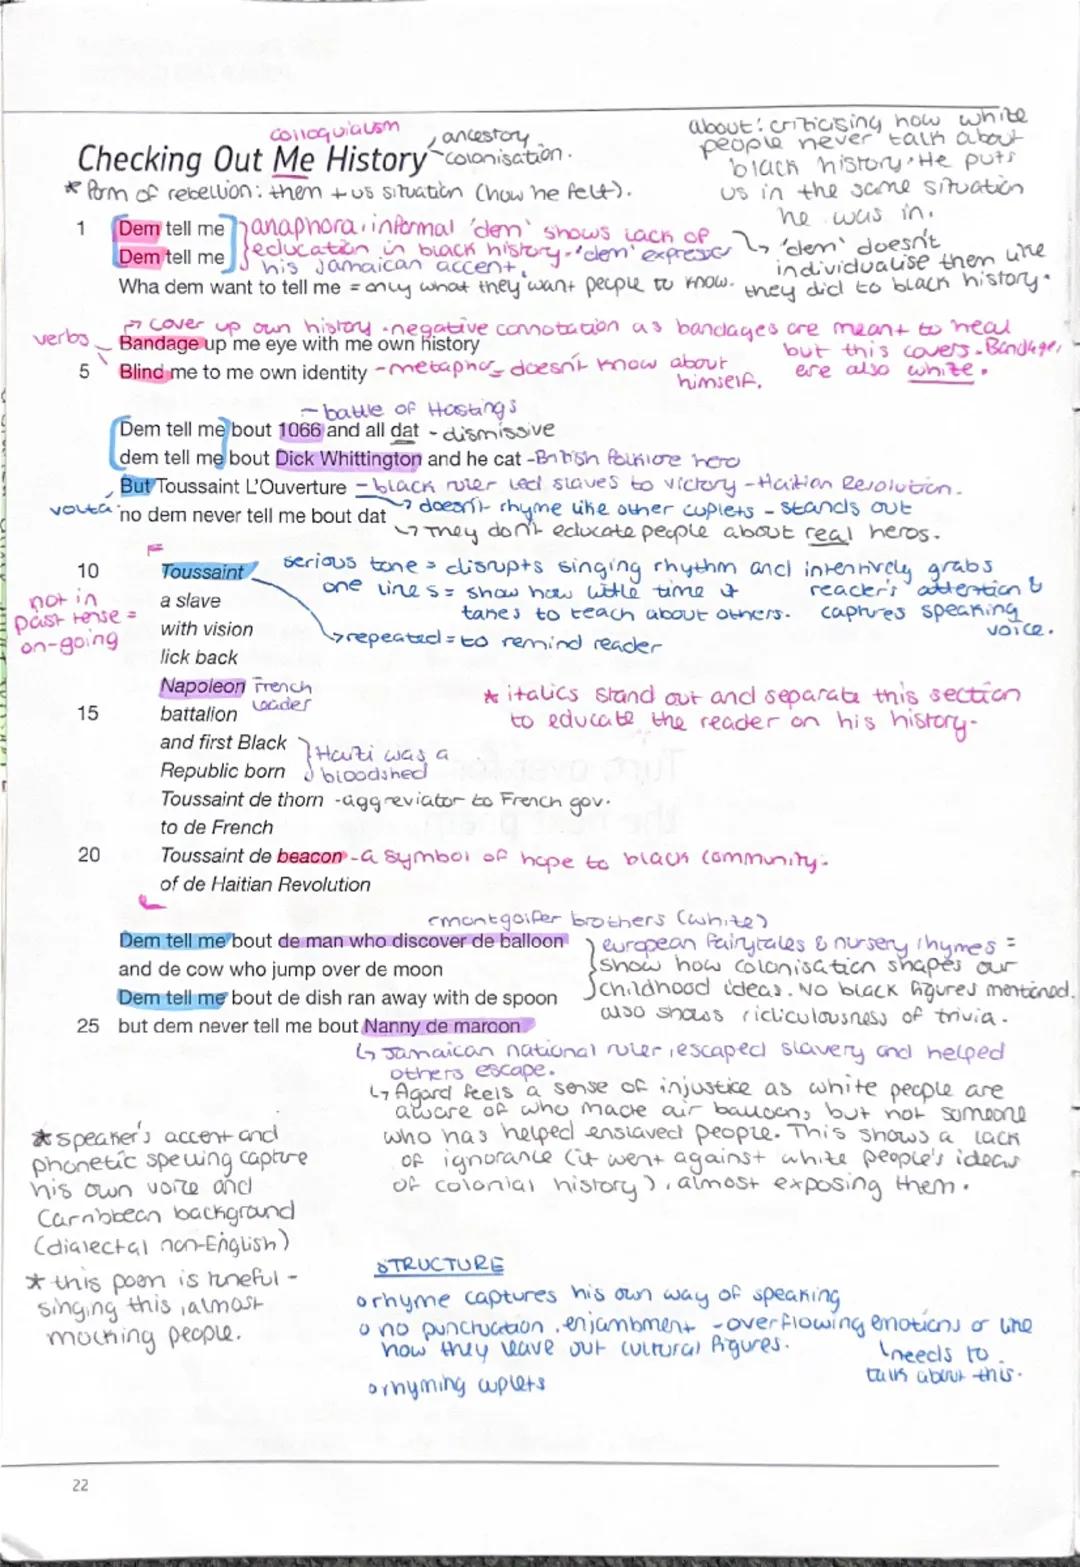 colloquialism
ancestory
Checking Out Me History colonisation.
* Form of rebellion: them + us situation (how he felt).
about: criticising how white
people never talk about
black history. He puts
us in the same situation
he was in.
1 Dem tell me
Dem tell me
Wha dem want to tell me = only what they want people to know.
anaphora, informal 'dem' shows lack of
education in black history. 'dem' expresses
his Jamaican accent.
↳ 'dem' doesn't
individualise them like
they did to black history.
verbs
↱ cover up own history - negative connotation as bandages are meant to heal
but this covers. Bandages
are also white.
Bandage up me eye with me own history
5 Blind me to me own identity - metaphor doesn't know about
himself.
- battle of Hastings
Dem tell me bout 1066 and all dat - dismissive
dem tell me bout Dick Whittington and he cat - British folklore hero
But Toussaint L'Ouverture - black ruler led slaves to victory - Haitian Revolution.
volta
no dem never tell me bout dat → doesn't rhyme like other cuplets - stands out
↳ They don't educate people about real heros.
10 Toussaint
a slave
with vision
lick back
Napoleon French
leader
15 battalion
and first Black
Republic born
Haiti was a
bloodshed
Toussaint de thorn - aggreviator to French gov.
to de French
20 Toussaint de beacon - a symbol of hope to black community.
of de Haitian Revolution
not in
past tense =
on-going
serious tone = disrupts singing rhythm and intentively grabs
reader's attention &
captures speaking
voice.
one lines = show how little time it
takes to teach about others.
→ repeated = to remind reader
* italics stand out and separate this section
to educate the reader on his history.
montgolfer brothers (white)
Dem tell me bout de man who discover de balloon
and de cow who jump over de moon
Dem tell me bout de dish ran away with de spoon
25 but dem never tell me bout Nanny de maroon
european fairytales & nursery rhymes =
show how colonisation shapes our
childhood ideas. No black figures mentioned.
also shows ridiculousness of trivia.
↳ Jamaican national ruler, escaped slavery and helped
others escape.
↳ Agard feels a sense of injustice as white people are
aware of who made air balloons but not someone
who has helped enslaved people. This shows a lack
of ignorance (it went against white people's ideas
of colonial history), almost exposing them.
* speaker's accent and
phonetic spelling capture
his own voice and
Carribbean background
(dialectal non-English)
* this poem is tuneful -
singing this, almost
mocking people.
STRUCTURE
o rhyme captures his own way of speaking
o no punctuation, enjambment - overflowing emotions or like
how they leave out cultural figures.
needs to
talk about this.
o rhyming cuplets
22